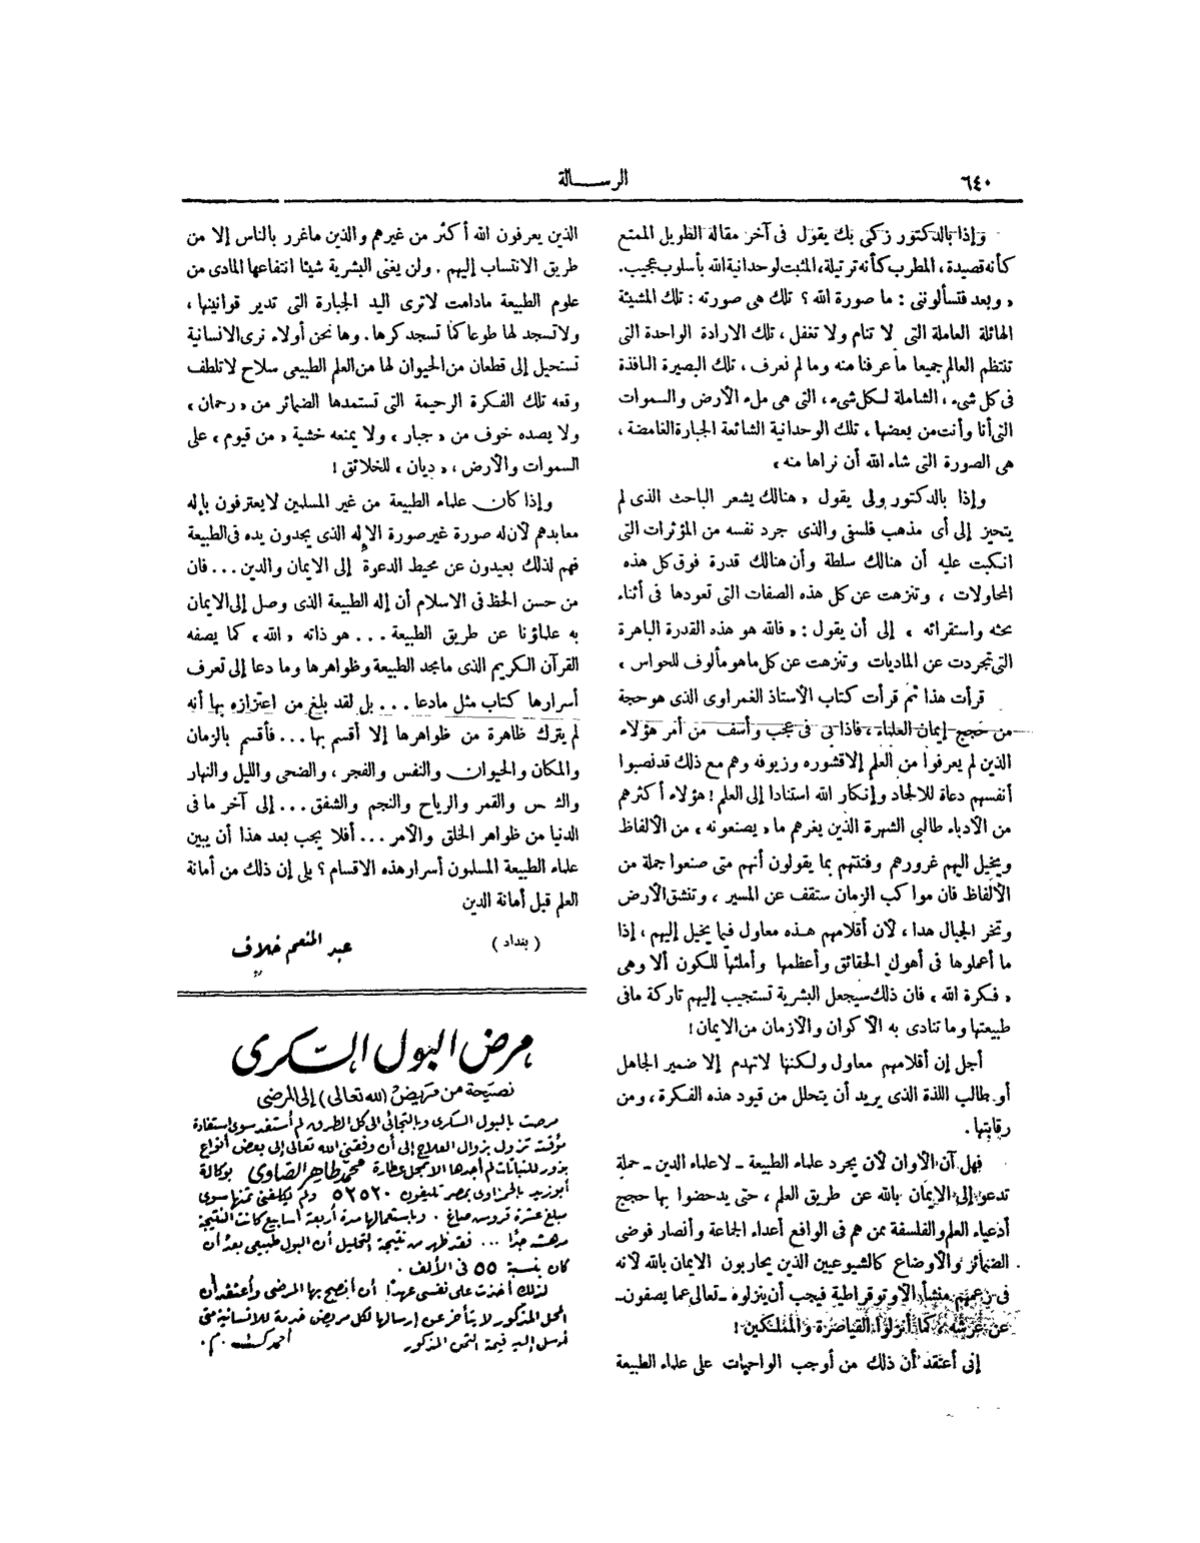 ٦٤٠
الرسالة
وإذا بالدكتور زكى بك يقول فى آخر مقاله الطويل الممتع
كأنه قصيدة ، المطرب كأنه ترتيلة ، المثبت لوحدانية الله بأسلوب عجيب .
« وبعد فتسألوننى : ما صورة الله ؟ تلك هى صورته : تلك المشيئة
الهائلة العاملة التى لا تنام ولا تغفل ، تلك الارادة الواحدة التى
تنتظم العالم جميعا ما عرفنا منه وما لم نعرف ، تلك البصيرة النافذة
فى كل شىء ، الشاملة لكل شىء ، التى هى ملء الأرض والسموات
التى أنا وأنت من بعضها ، تلك الوحدانية الشائعة الجبارة الغامضة ،
هى الصورة التى شاء الله أن نراها منه »
وإذا بالدكتور ولى يقول « هنالك يشعر الباحث الذى لم
يتحيز إلى أى مذهب فلسفى والذى جرد نفسه من المؤثرات التى
انكبت عليه أن هنالك سلطة وأن هنالك قدرة فوق كل هذه
المحاولات ، وتنزهت عن كل هذه الصفات التى تعودها فى أثناء
بحثه واستقرائه » إلى أن يقول : « فالله هو هذه القدرة الباهرة
التى تجردت عن الماديات وتنزهت عن كل ما هو مألوف للحواس »
قرأت هذا ثم قرأت كتاب الأستاذ الغمراوى الذى هو حجة
من حجج إيمان العلماء ، فاذا بى فى عجب وأسف من أمر هؤلاء
الذين لم يعرفوا من العلم إلا قشوره وزيوفه وهم مع ذلك قد نصبوا
أنفسهم دعاة للالحاد وإنكار الله استنادا إلى العلم ! هؤلاء أكثرهم
من الأدباء طالبي الشهرة الذين يغرهم ما « يصنعونه » من الألفاظ
ويخيل اليهم غرورهم وفتنتهم بما يقولون أنهم متى صنعوا جملة من
الألفاظ فان مواكب الزمان ستقف عن المسير ، وتنشق الأرض
وتخر الجبال هدا ، لأن أقلامهم هذه معاول فيما يخيل إليهم ، إذا
ما أعملوها فى أهول الحقائق وأعظمها وأملئها للكون ألا وهى
« فكرة الله » فان ذلك سيجعل البشرية تستجيب إليهم تاركة ما فى
طبيعتها وما تنادى به الأكوان والأزمان من الايمان !
أجل إن أقلامهم معاول ولكنها لا تهدم إلا ضمير الجاهل
أو طالب اللذة الذى يريد أن يتحلل من قيود هذه الفكرة ، ومن
رقابتها .
فهل آن الأوان لأن يجرد علماء الطبيعة – لا علماء الدين – حملة
تدعو إلى الايمان بالله عن طريق العلم ، حتى يدحضوا بها حجج
أدعياء العلم والفلسفة ممن هم فى الواقع أعداء الجماعة وأنصار فوضى
الضمائر والأوضاع كالشيوعيين الذين يحاربون الايمان بالله لأنه
فى زعمهم منشأ الأوتوقراطية فيجب أن ينزلوه – تعالى عما يصفون –
عن عرشه ، كما أنزلوا القياصرة والمملكين !
إنى أعتقد أن ذلك من أوجب الواجبات على علماء الطبيعة
الذين يعرفون الله أكثر من غيرهم والذين ما غرر بالناس إلا من
طريق الانتساب إليهم . ولن يغنى البشرية شيئا انتفاعها المادى من
علوم الطبيعة مادامت لا ترى اليد الجبارة التى تدير قوانينها ،
ولا تسجد لها طوعا كما تسجد كرها . وها نحن أولاء نرى الانسانية
تستحيل إلى قطعان من الحيوان لها من العلم الطبيعى سلاح لا تلطف
وقعه تلك الفكرة الرحيمة التى تستمدها الضمائر من « رحمان »
ولا يصده خوف من « جبار » ولا يمنعه خشية « من قيوم » على
السموات والأرض ، « ديان » للخلائق !
وإذا كان علماء الطبيعة من غير المسلمين لا يعترفون بإله
معابدهم لأن له صورة غير صورة الإله الذى يجدون يده فى الطبيعة
فهم لذلك بعيدون عن محيط الدعوة إلى الايمان والدين . . . فان
من حسن الحظ فى الاسلام أن إله الطبيعة الذى وصل إلى الايمان
به علماؤنا عن طريق الطبيعة . . . هو ذاته « الله » كما يصفه
القرآن الكريم الذى ما مجد الطبيعة وظواهرها وما دعا إلى تعرف
أسرارها كتاب مثل ما دعا . . . بل لقد بلغ من اعتزازه بها أنه
لم يترك ظاهرة من ظواهرها إلا أقسم بها . . . فأقسم بالزمان
والمكان والحيوان والنفس والفجر ، والضحى والليل والنهار
والشمس والقمر والرياح والنجم والشفق . . . إلى آخر ما فى
الدنيا من ظواهر الخلق والأمر . . . أفلا يجب بعد هذا أن يبين
علماء الطبيعة المسلمون أسرار هذه الاقسام ؟ بلى إن ذلك من أمانة
العلم قبل أمانة الدين
( بغداد ) عبد المنعم خلاف
مرض البول السكرى
نصيحة من مريض (لله تعالى) إلى المرضى
مرضت بالبول السكرى وبالتجائى الى كل الطرق لم أستفد سوى استفادة
مؤقتة تزول بزوال العلاج إلى أن وفقنى الله تعالى إلى بعض أنواع
بزور للنباتات لم أجدها الا بمحل عطارة محمد طاهر الضاوى بوكالة
أبوزيد بالحمزاوى بمصر تليفون ٥٢٥٢٠ ولم يكلفنى ثمنها سوى
مبلغ عشرة قروش صاغ . وباستعمالها مدة أربعة أسابيع كانت النتيجة
مدهشة جدًا ... فقد ظهر من نتيجة التحليل أن البول طبيعى بعد أن
كان بنسبة ٥٥ فى الألف .
لذلك أخذت على نفسى عهدًا أن أنصح بها المرضى وأعتقد أن
المحل المذكور لا يتأخر عن إرسالها لكل مريض خدمة للانسانية متى
أرسل اليه قيمة الثمن المذكور